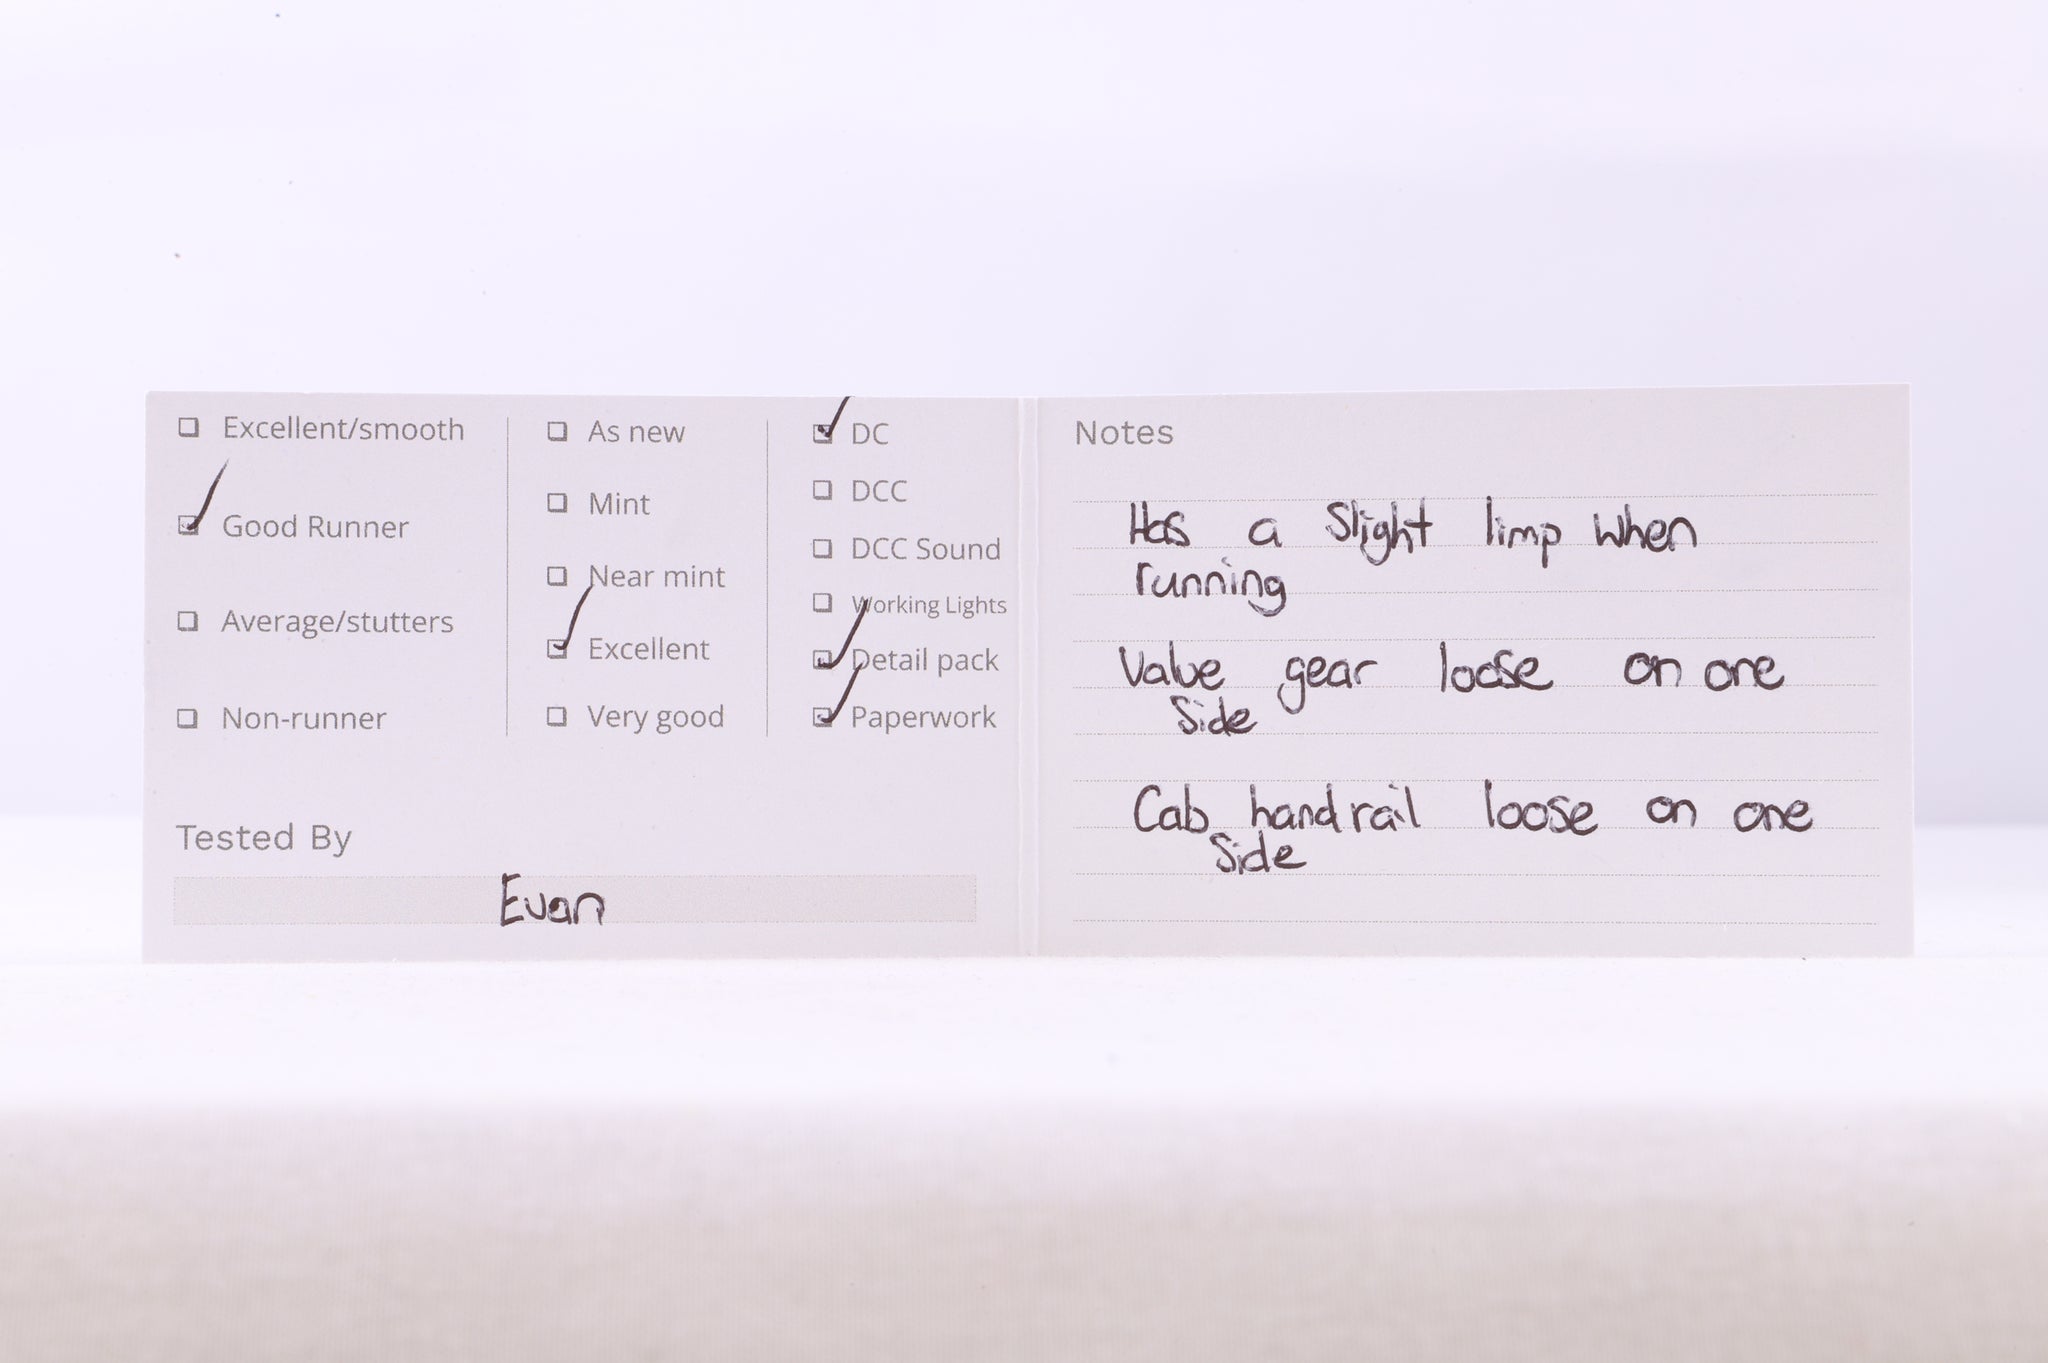 Excellent/smooth
Good Runner
Average/stutters
Non-runner
As new
Mint
Near mint
Excellent
Very good
DC
DCC
DCC Sound
Working Lights
Detail pack
Paperwork
Tested By
Evan
Notes
Has a Slight limp when
running
Valve gear loose on one
Side
Cab handrail loose on one
Side